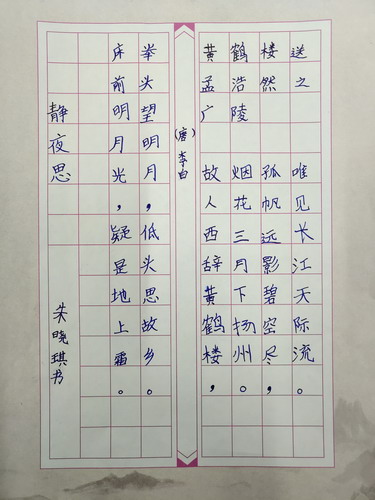 静夜思
床前明月光，疑是地上霜。
举头望明月，低头思故乡。
朱晓琪书
(唐)李白
黄鹤楼送
孟浩然之
广陵
故人西辞黄鹤楼，
烟花三月下扬州。
孤帆远影碧空尽，
唯见长江天际流。